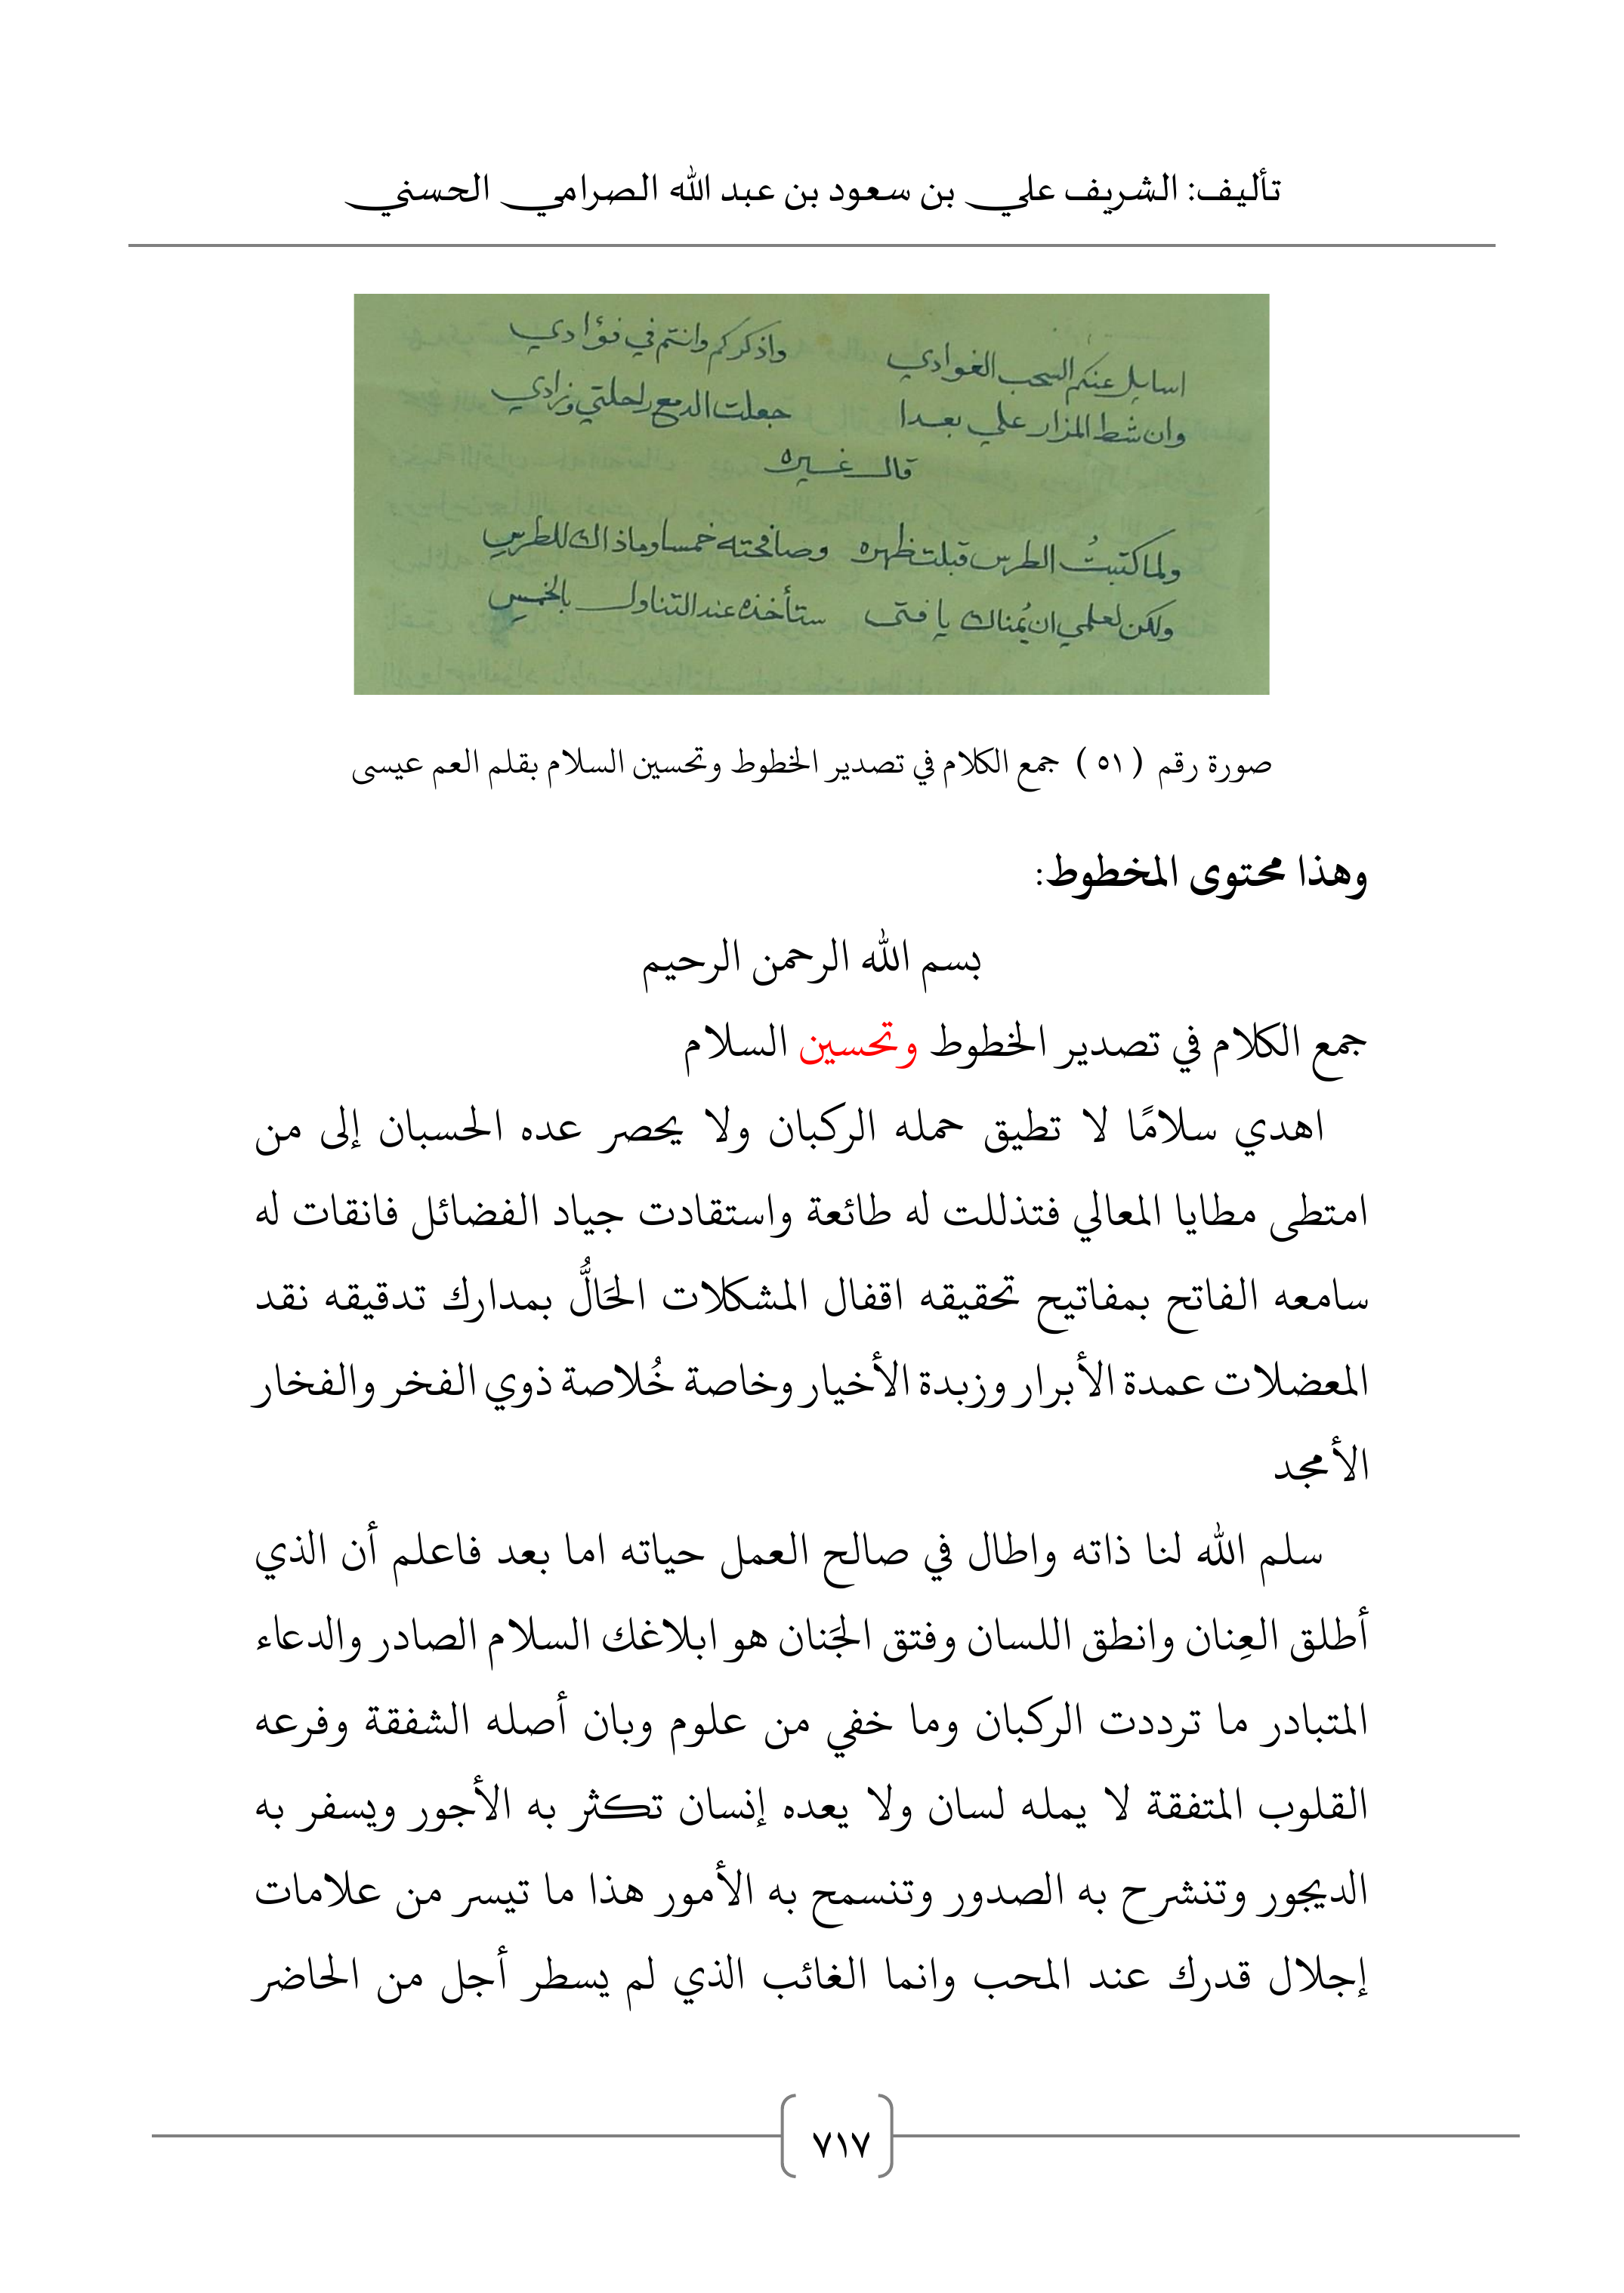 تأليف: الشريف علي بن سعود بن عبد الله الصرامي الحسني
اسايل عنكم السحب الغوادي واذكركم وانتم في فؤادي
وان شط المزار علي بعدا جعلت الدمع راحلتي وزادي
قال غيره
ولما كتبتُ الطرس قبلت ظهره وصافحته خمسا وما ذاك للطرسِ
ولكن لعلمي ان يُمناك يا فتى ستأخذه عند التناول بالخمسِ
صورة رقم ( ٥١ ) جمع الكلام في تصدير الخطوط وتحسين السلام بقلم العم عيسى
وهذا محتوى المخطوط:
بسم الله الرحمن الرحيم
جمع الكلام في تصدير الخطوط وتحسين السلام
اهدي سلامًا لا تطيق حمله الركبان ولا يحصر عده الحسبان إلى من
امتطى مطايا المعالي فتذللت له طائعة واستقادت جياد الفضائل فانقات له
سامعه الفاتح بمفاتيح تحقيقه اقفال المشكلات الحَالُّ بمدارك تدقيقه نقد
المعضلات عمدة الأبرار وزبدة الأخيار وخاصة خُلاصة ذوي الفخر والفخار
الأمجد
سلم الله لنا ذاته واطال في صالح العمل حياته اما بعد فاعلم أن الذي
أطلق العِنان وانطق اللسان وفتق الجَنان هو ابلاغك السلام الصادر والدعاء
المتبادر ما ترددت الركبان وما خفي من علوم وبان أصله الشفقة وفرعه
القلوب المتفقة لا يمله لسان ولا يعده إنسان تكثر به الأجور ويسفر به
الديجور وتنشرح به الصدور وتنسمح به الأمور هذا ما تيسر من علامات
إجلال قدرك عند المحب وانما الغائب الذي لم يسطر أجل من الحاضر
٧١٧